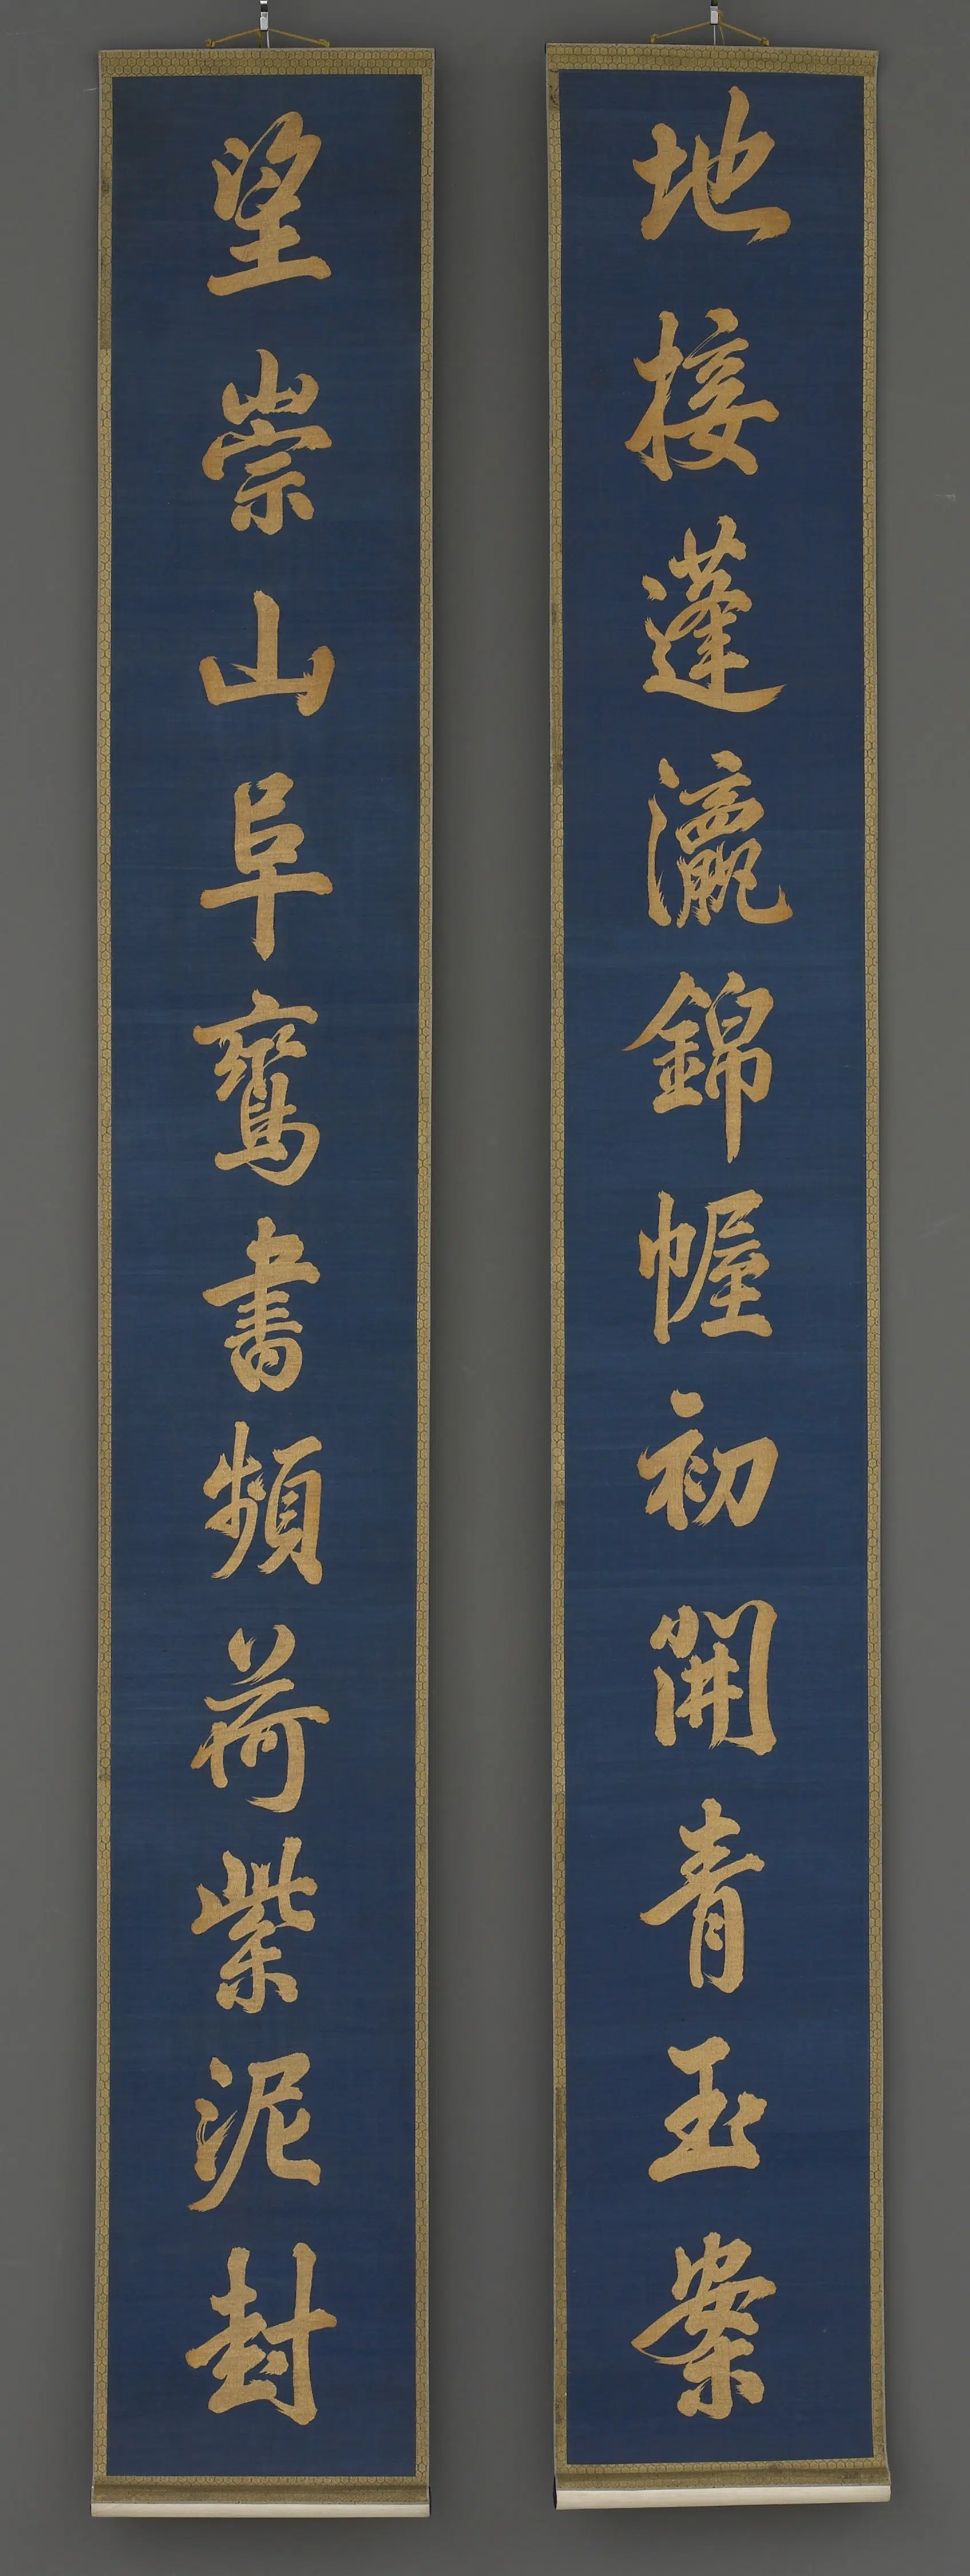 地接蓬瀛錦幄初開青玉案
望崇山阜鸞書頻荷紫泥封